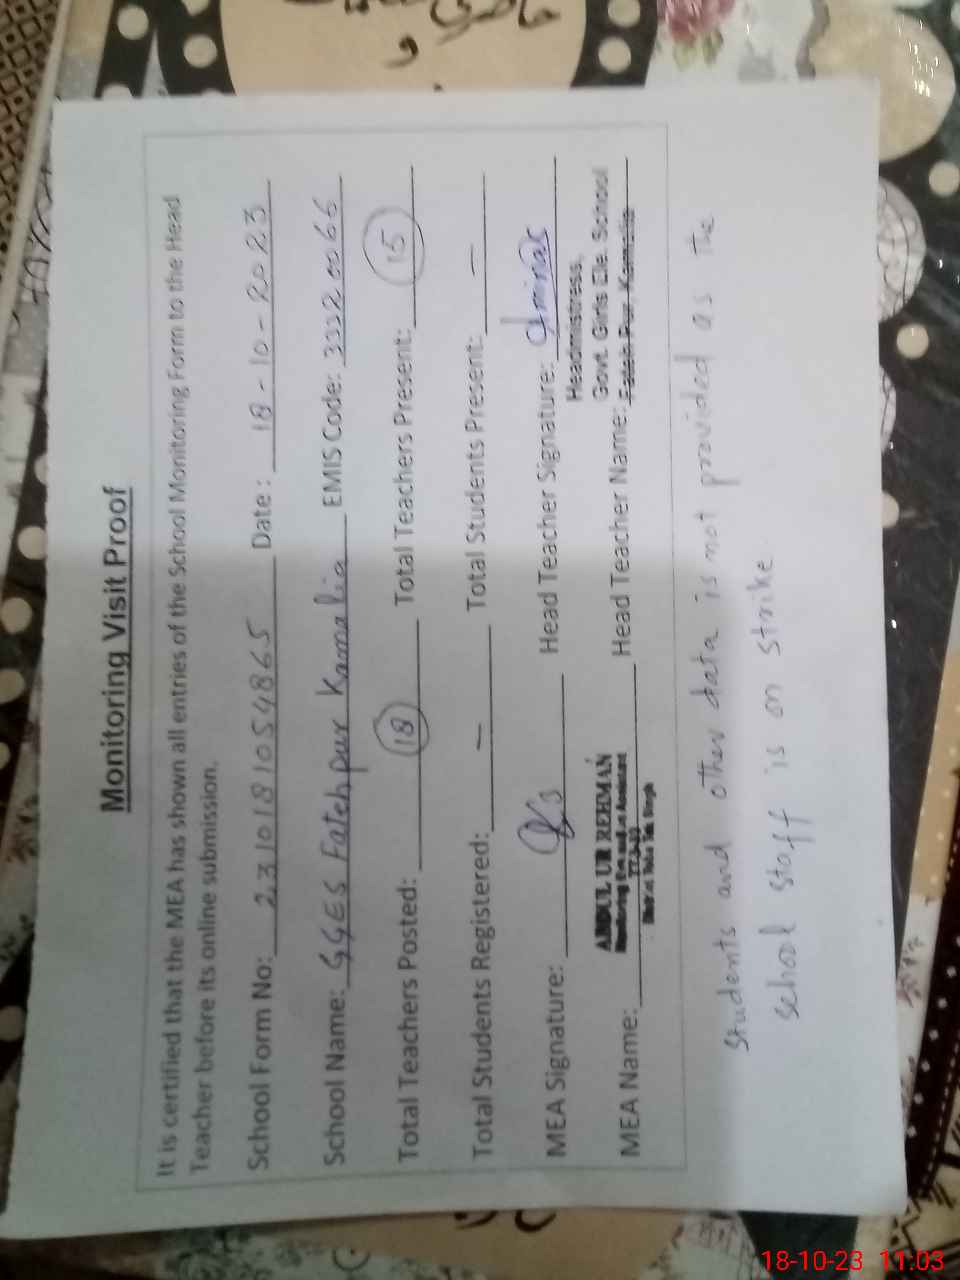 Monitoring Visit Proof
It is certified that the MEA has shown all entries of the School Monitoring Form to the Head
Teacher before its online submission.
School Form No: 2310181054865 Date: 18-10-2023
School Name: GGES Fatehpur Kamalia EMIS Code: 33320066
Total Teachers Posted: 18 Total Teachers Present: 15
Total Students Registered: — Total Students Present: —
MEA Signature: Head Teacher Signature:
Headmistress,
ABDUL UR REHMAN Govt. Girls Ele. School
Monitoring Evaluation Assistant
MEA Name: Head Teacher Name: Kamalia
Students and other data is not provided as the
school staff is on strike
18-10-23 11:03